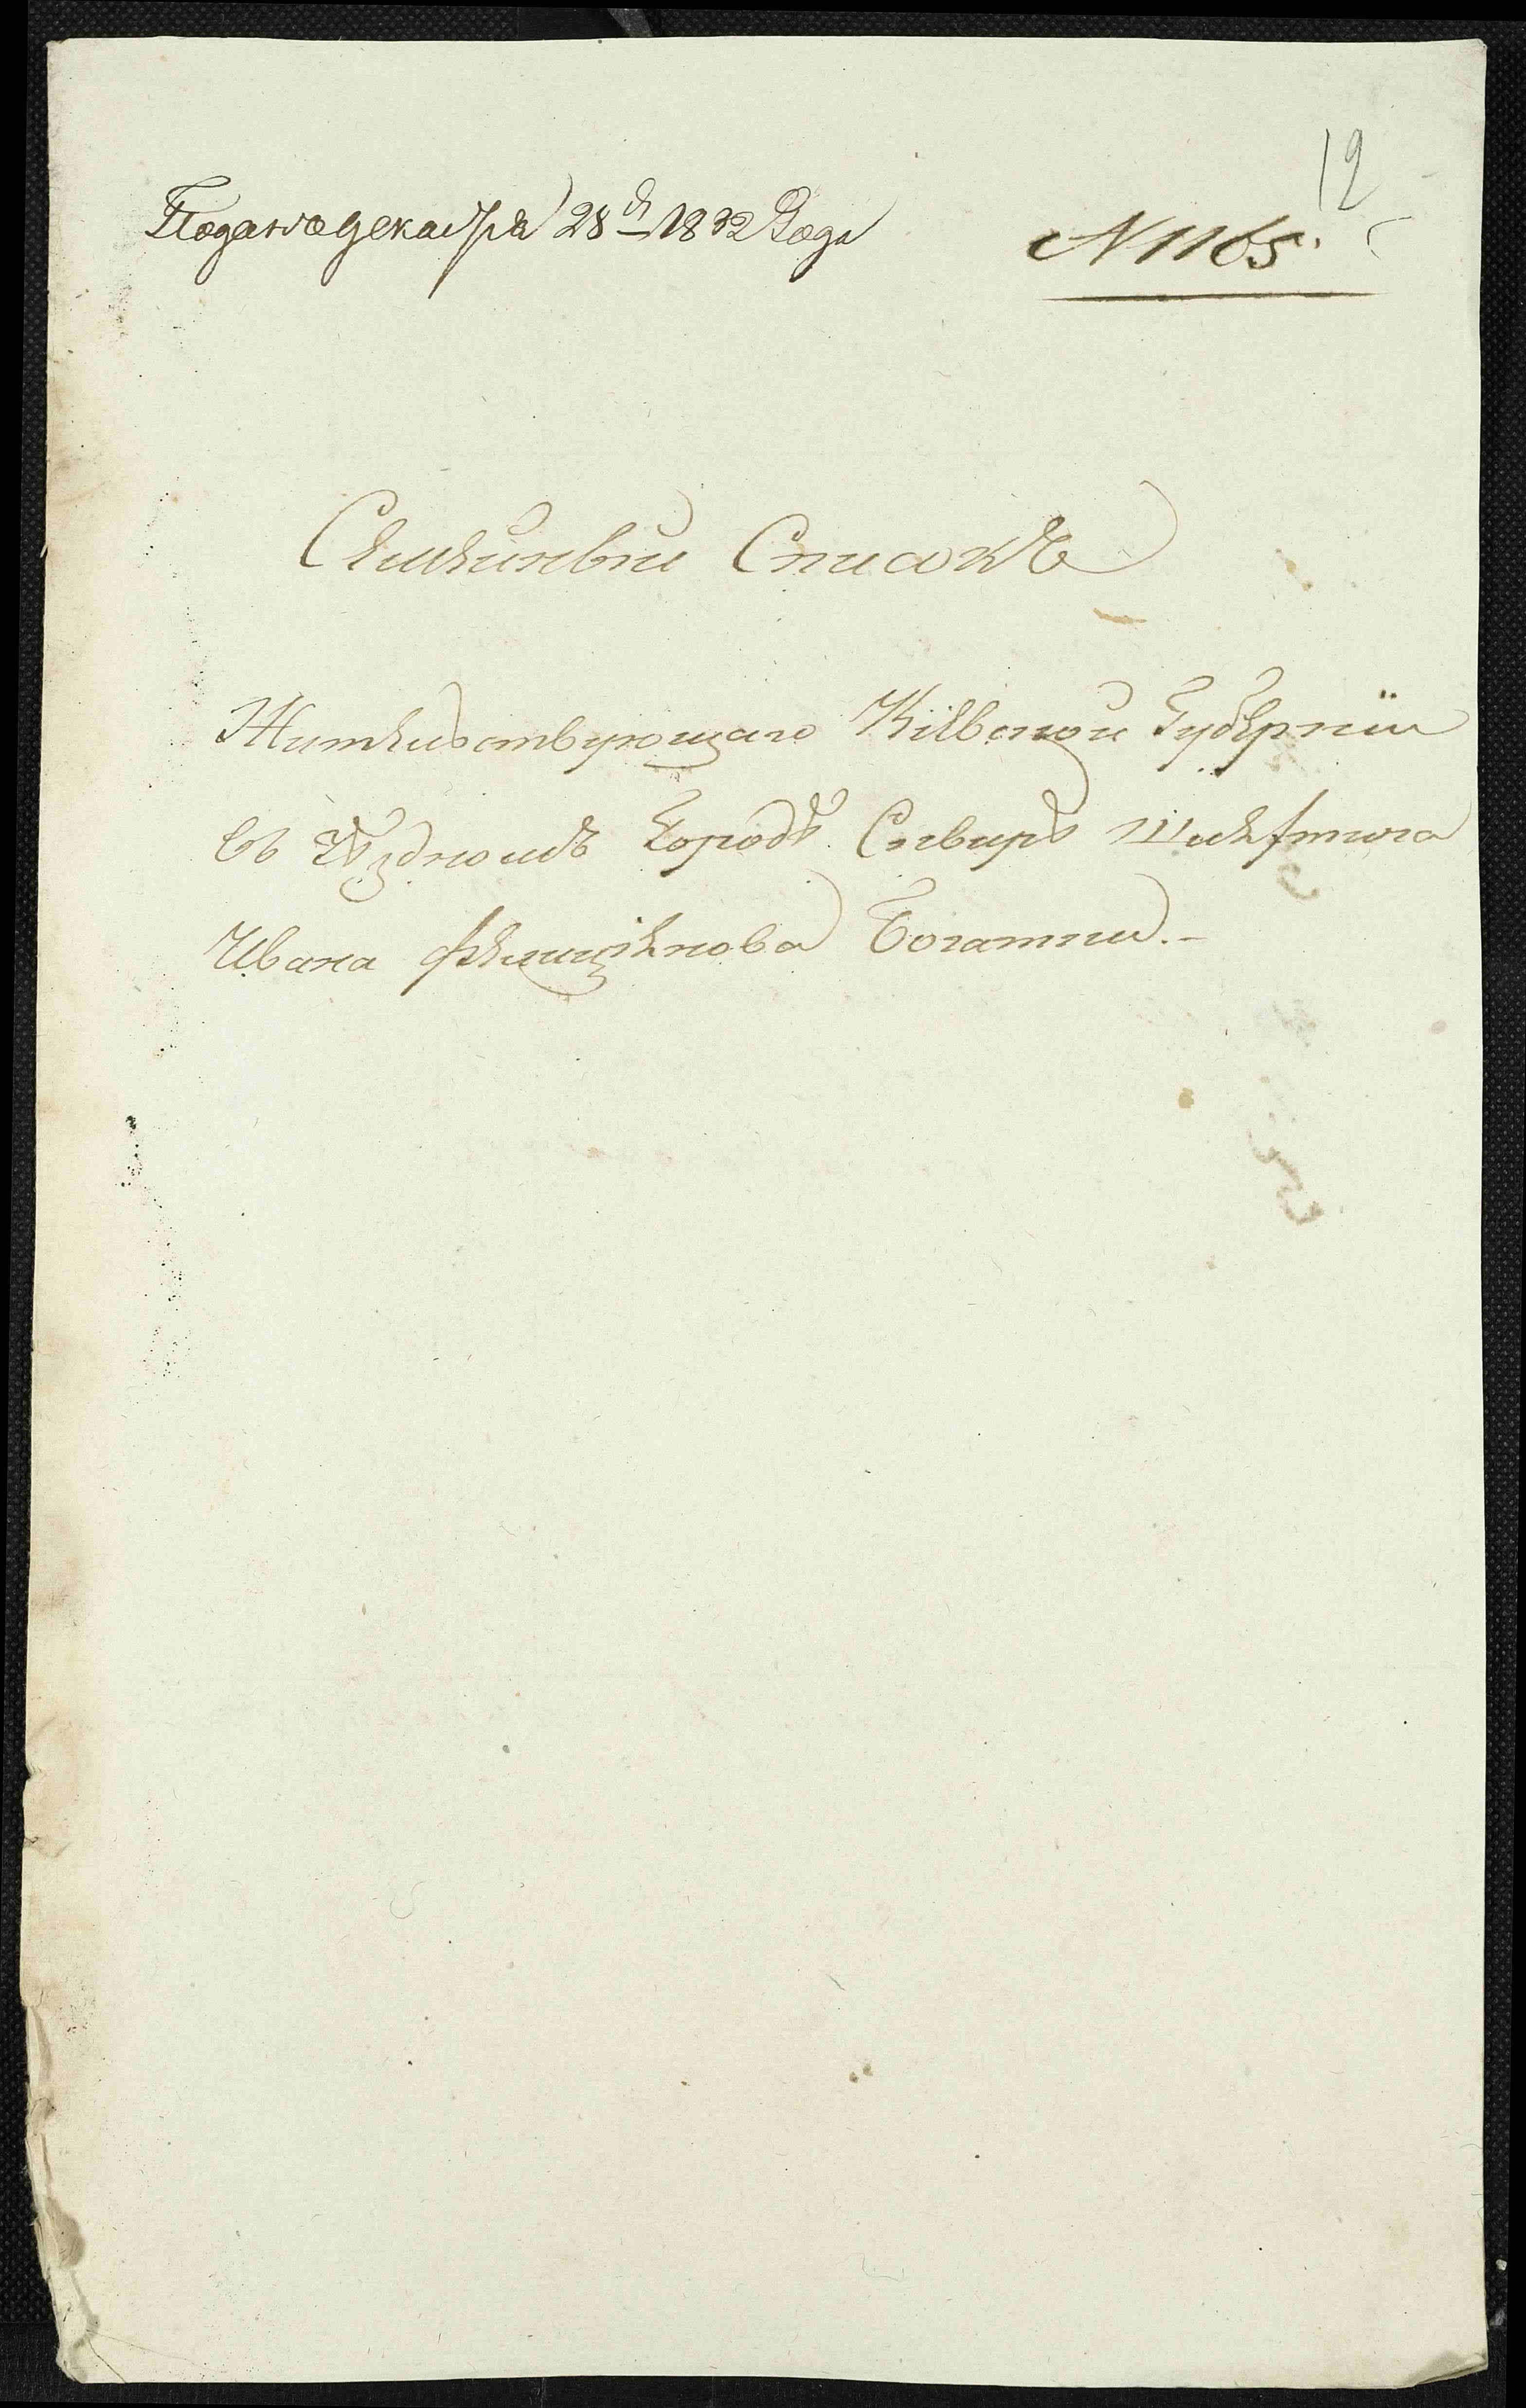 12
Подано декабря 28 д 1832 Года
N 1165.
Семейный Списокъ
Жительствующаго Кіевской Губерніи
въ Уѣздномъ Городѣ Сквирѣ Шляхтича
Ивана Фелиціянова Богатки.-